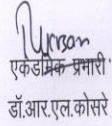 एकेडमिक प्रभारी
डॉ.आर.एल.कोसरे